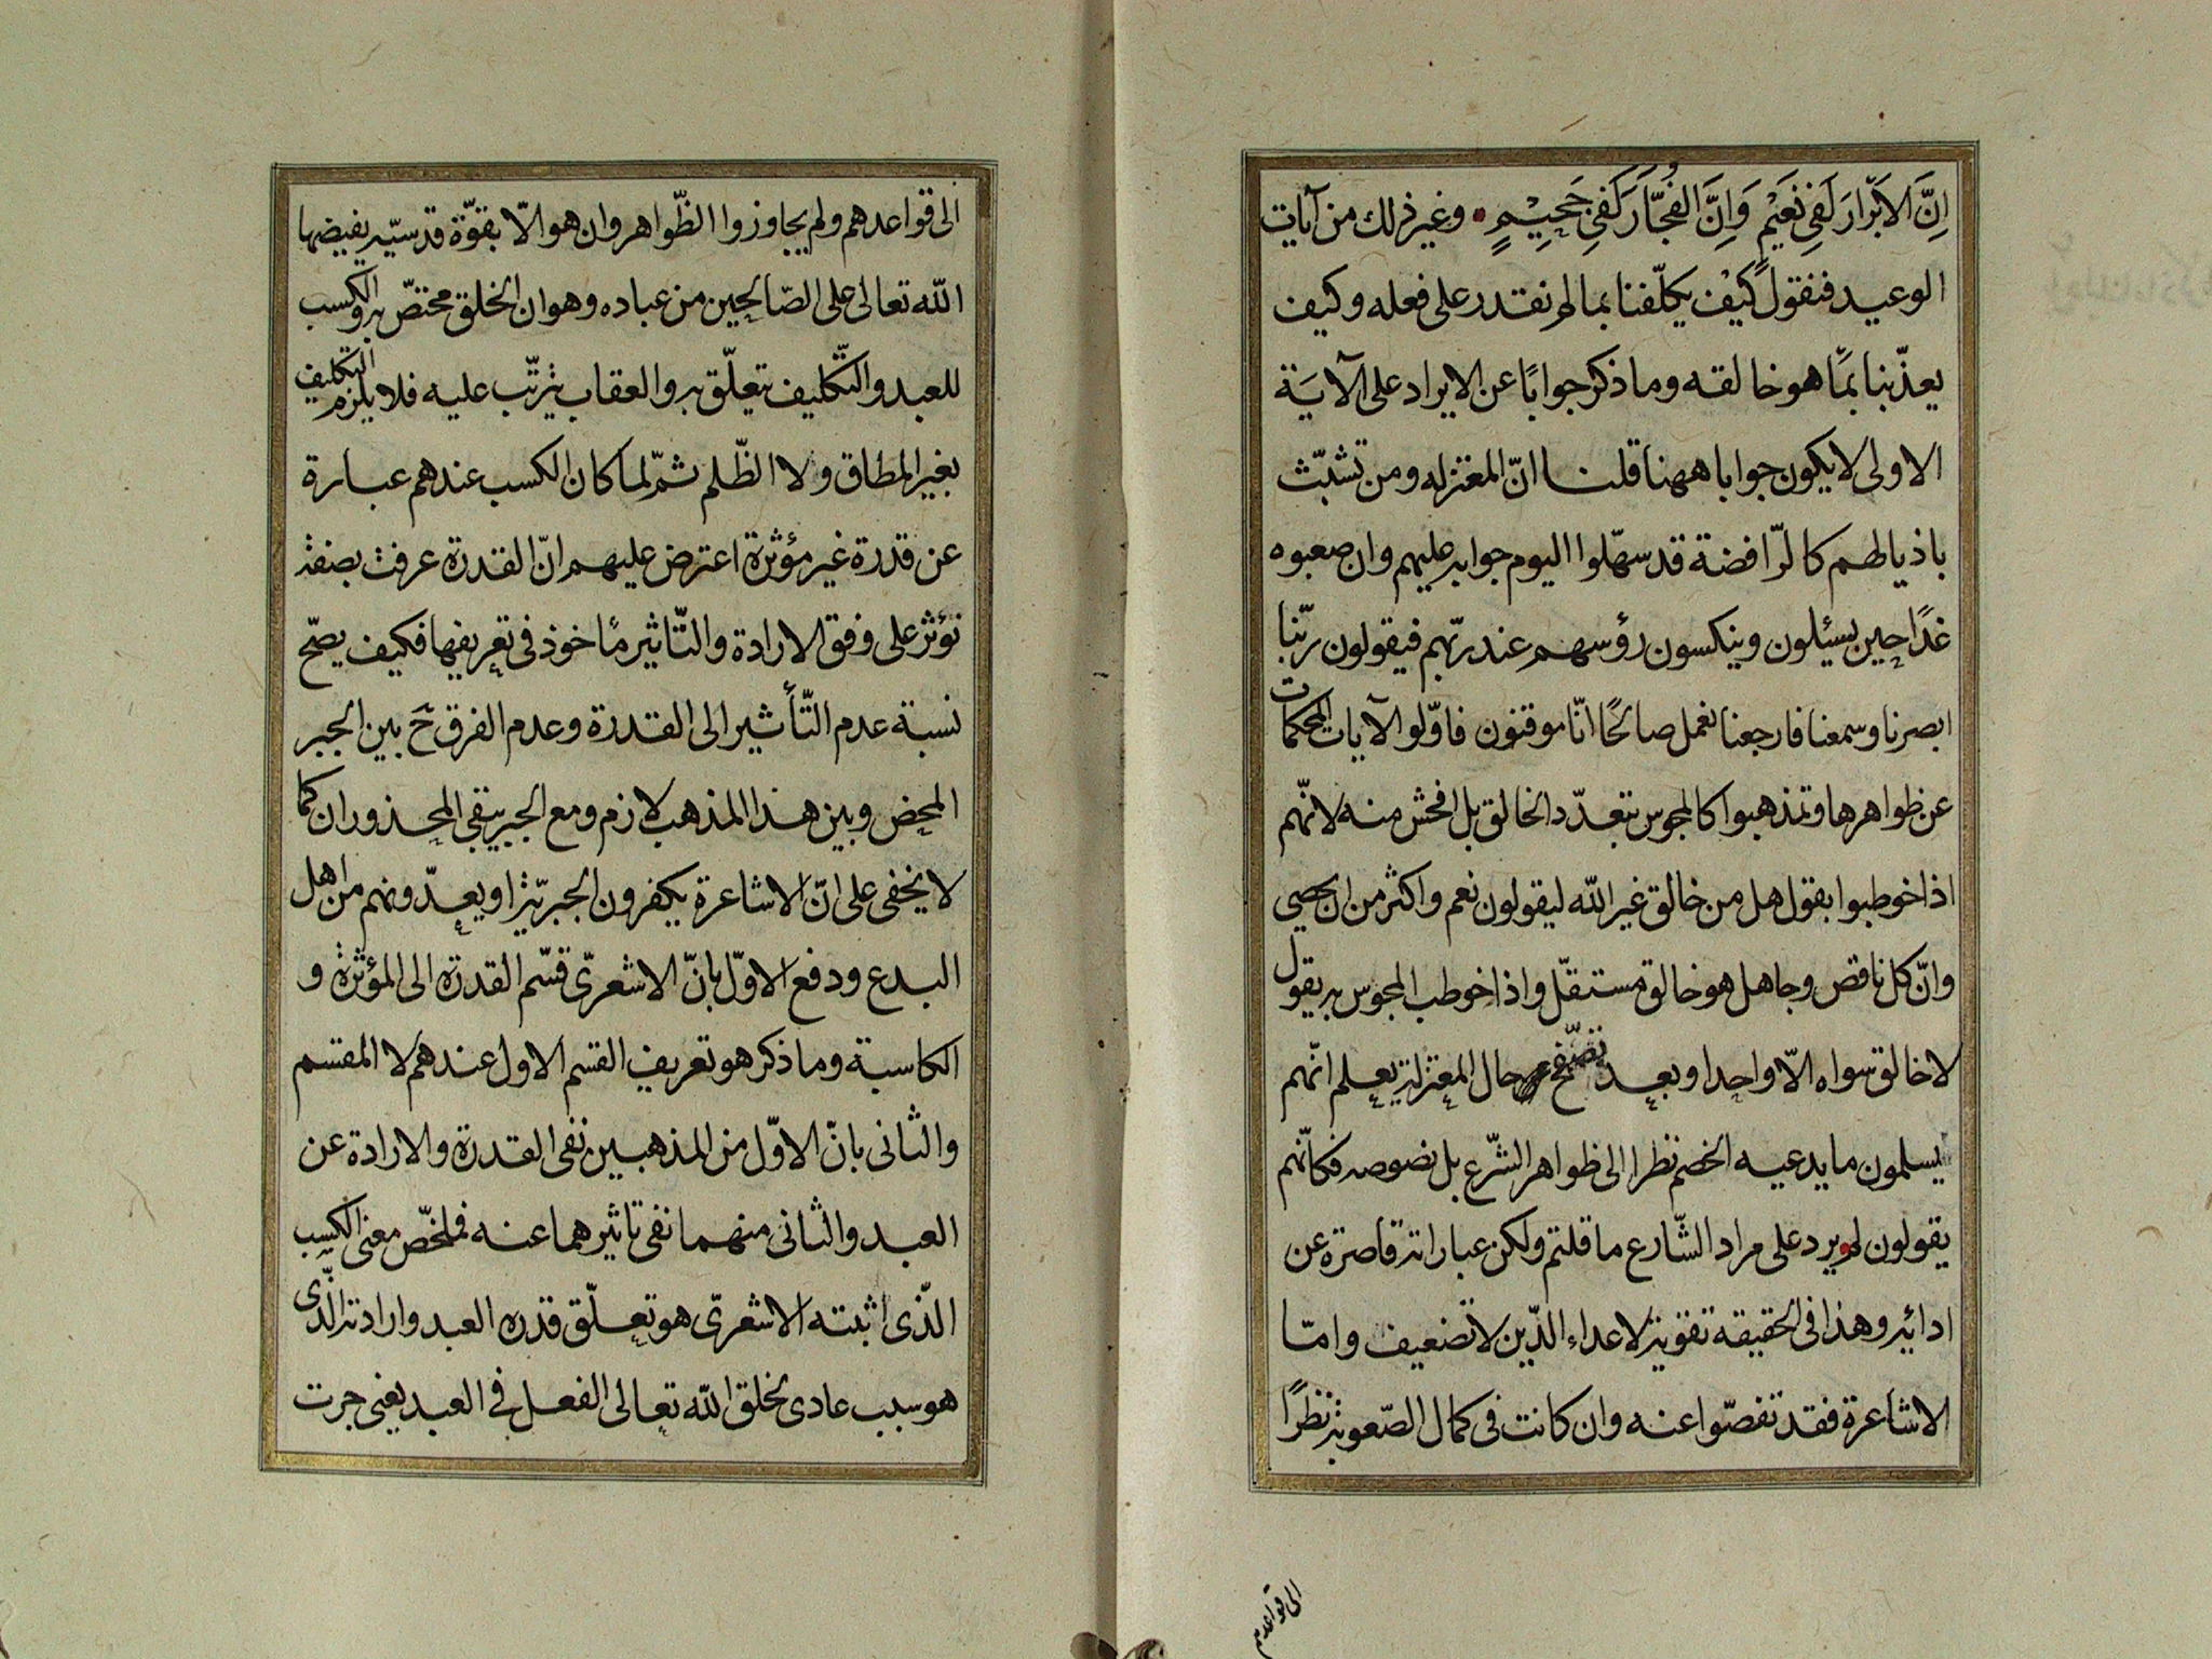 اِنَّ الاَبْرَارَ لَفِي نَعِيْمٍ وَاِنَّ الفُجَّارَ لَفِي جَحِيْمٍ وغير ذلك من آيات
الوعيد فنقول كَيْف يكلّفنا بما لم نقدر على فعله وكيف
يعذّبنا بمَا هو خالقه وما ذكر جوابًا عن الايراد على الآيَة
الاولى لا يكون جوابا ههنا قلنا انّ المعتزله ومن تشبّث
باذيالهم كالرّافضة قد سهّلوا اليوم جوابه عليهم وان صعبوه
غدًا حين يسئلون وينكسون رؤسهم عند ربّهم فيقولون ربّنا
ابصرنا وسمعنا فارجعنا نعمل صالحًا انّا موقنون فاوّلوا الآيات المحكمات
عن ظواهرها وتمذهبوا كالمجوس بتعدّد الخالق بل افحش منه لانّهم
اذا خوطبوا بقول هل من خالق غير الله ليقولون نعم واكثر من ان يحصى
وانّ كل ناقص وجاهل هو خالق مستقلّ واذا خوطب المجوس به يقول
لا خالق سواه الّا واحدا وبعد تصفّح حال المعتزلة يعلم انّهم
يسلمون ما يدعيه الخصم نظرا الى ظواهر الشّرع بل نصوصه فكانّهم
يقولون لم يرد على مراد الشّارع ما قلتم ولكن عباراته قاصرة عن
ادائه وهذا فى الحقيقه تقوية لاعداء الدّين لا تضعيف وامّا
الاشاعرة فقد تفصّوا عنه وان كانت فى كمال الصّعوبة نظرًا
الى قواعدهم
الى قواعدهم ولم يجاوزوا الظّواهر وان هو الّا بقوّة قدسيّة يفيضها
الله تعالى على الصّالحين من عباده وهو ان الخلق مختصّ به والكسب
للعبد والتّكليف يتعلّق به والعقاب يترتّب عليه فلا يلزم التكليف
بغير المطاق ولا الظّلم ثمّ لما كان الكسب عندهم عبارة
عن قدرة غير مؤثرة اعترض عليهم انّ القدرة عرفت بصفة
تؤثر على وفق الارادة والتّاثير ماخوذ فى تعريفها فكيف يصّح
نسبة عدم التّأثير الى القدرة وعدم الفرق ح بين الجبر
المحض وبين هذا المذهب لازم ومع الجبر يبقى المحذوران كما
لا يخفى على انّ الاشاعرة يكفرون الجبريّة او يعدّونهم من اهل
البدع ودفع الاوّل بانّ الاشعرىّ قسّم القدرة الى المؤثرة و
الكاسبة وما ذكر هو تعريف القسم الاول عندهم لا المقسم
والثانى بانّ الاوّل من المذهبين نفى القدرة والارادة عن
العبد والثانى منهما نفى تاثيرهما عنه فملخّص معنى الكسب
الّذى اثبته الاشعرىّ هو تعلّق قدرة العبد وارادته الّذى
هو سبب عادى لخلق الله تعالى الفعل فى العبد يعنى جرت